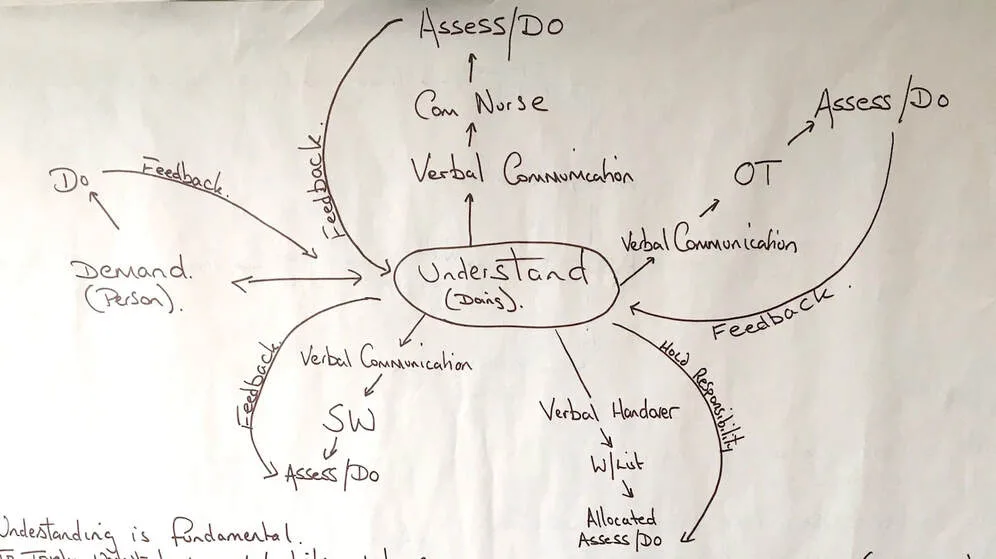 Assess/Do
Com Nurse
Verbal Communication
Feedback.
Do
Feedback.
Demand.
(Person).
Understand
(Doing).
Assess/Do
OT
Verbal Communication
Feedback.
Feedback
Verbal Communication
SW
Assess/Do
Hold Responsibility
Verbal Handover
W/List
Allocated
Assess/Do
Understanding is fundamental.